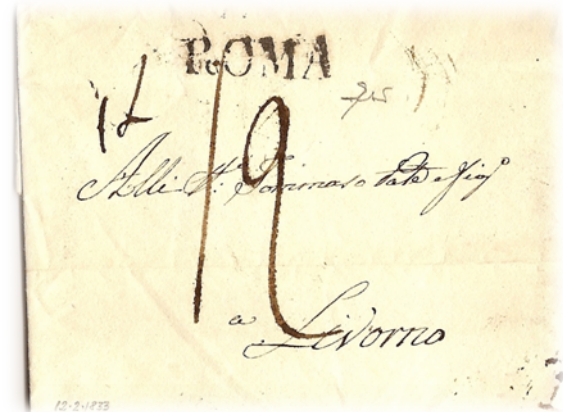 ROMA
12
Alli Sri. Tommaso Pate e figo
a Livorno
12-2-1833